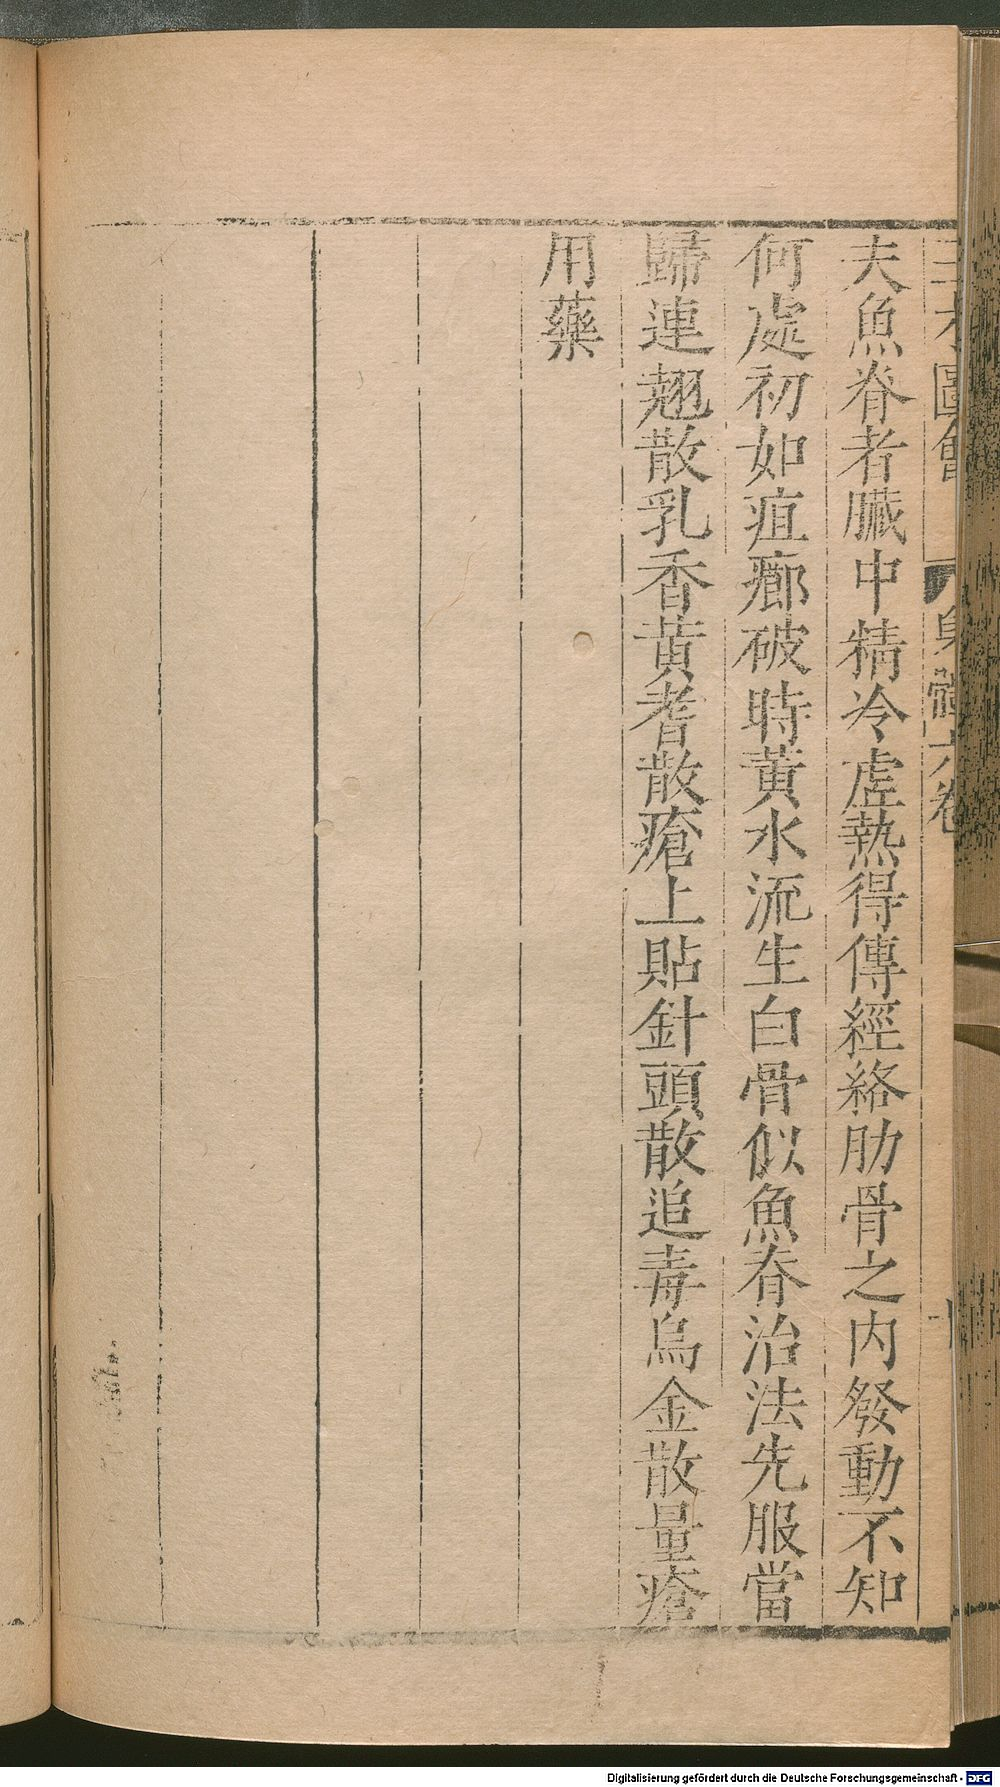 三才圖會 身體六卷 十
夫魚脊者臟中精冷虛熱得傳經絡肋骨之内發動不知
何處初如疽癤破時黃水流生白骨似魚脊治法先服當
歸連翹散乳香黃耆散瘡上貼針頭散追毒烏金散量瘡
用藥
Digitalisierung gefördert durch die Deutsche Forschungsgemeinschaft - DFG